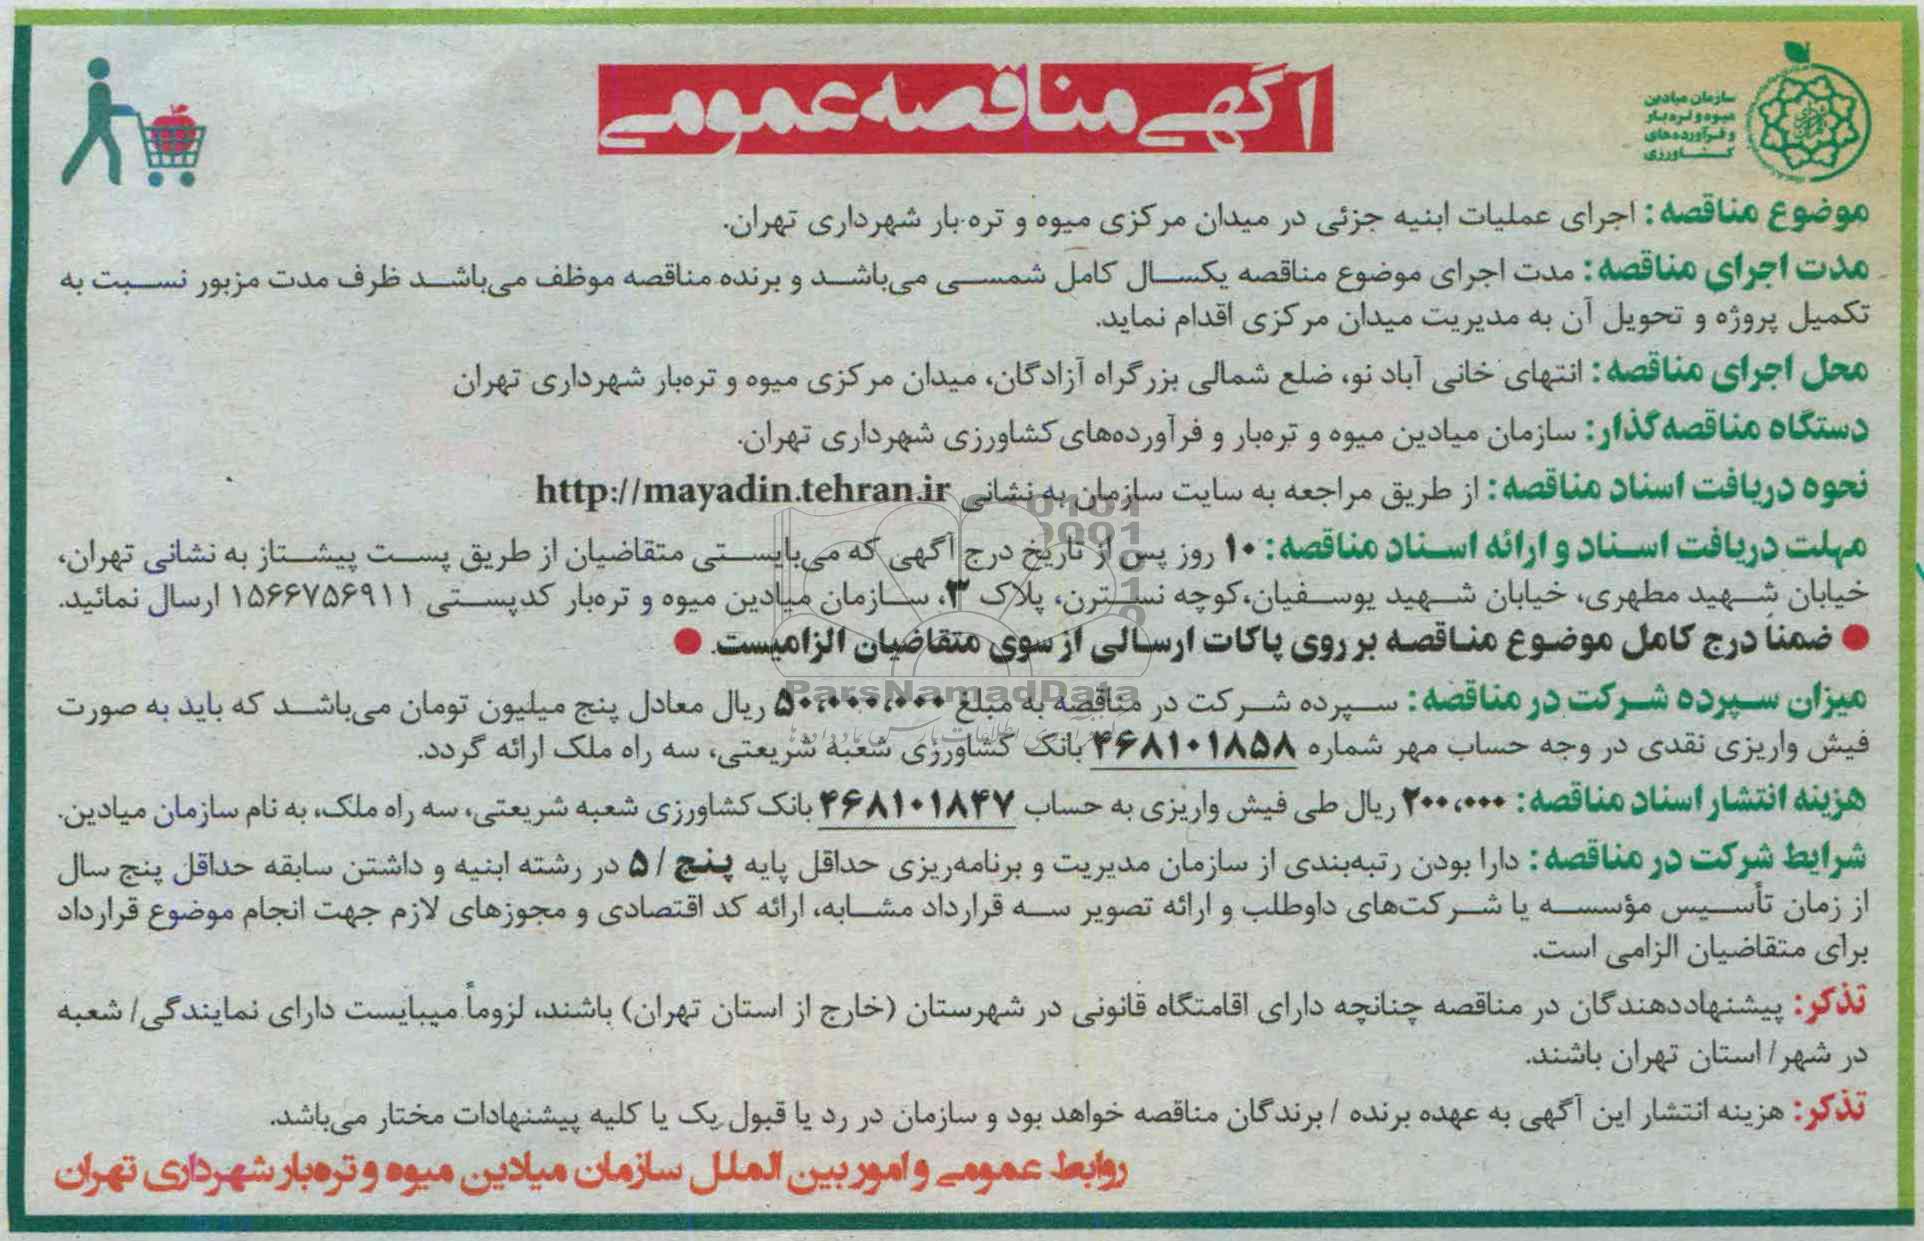 آگهی مناقصه عمومی
سازمان میادین
میوه و تره بار
و فرآورده‌های
کشاورزی
موضوع مناقصه: اجرای عملیات ابنیه جزئی در میدان مرکزی میوه و تره بار شهرداری تهران.
مدت اجرای مناقصه: مدت اجرای موضوع مناقصه یکسال کامل شمسی می‌باشد و برنده مناقصه موظف می‌باشد ظرف مدت مزبور نسبت به
تکمیل پروژه و تحویل آن به مدیریت میدان مرکزی اقدام نماید.
محل اجرای مناقصه: انتهای خانی آباد نو، ضلع شمالی بزرگراه آزادگان، میدان مرکزی میوه و تره‌بار شهرداری تهران
دستگاه مناقصه‌گذار: سازمان میادین میوه و تره‌بار و فرآورده‌های کشاورزی شهرداری تهران.
نحوه دریافت اسناد مناقصه: از طریق مراجعه به سایت سازمان به نشانی http://mayadin.tehran.ir
مهلت دریافت اسناد و ارائه اسناد مناقصه: ۱۰ روز پس از تاریخ درج آگهی که می‌بایستی متقاضیان از طریق پست پیشتاز به نشانی تهران،
خیابان شهید مطهری، خیابان شهید یوسفیان،کوچه نسترن، پلاک ۳، سازمان میادین میوه و تره‌بار کدپستی ۱۵۶۶۷۵۶۹۱۱ ارسال نمائید.
● ضمناً درج کامل موضوع مناقصه بر روی پاکات ارسالی از سوی متقاضیان الزامیست. ●
ParsNamadData
میزان سپرده شرکت در مناقصه: سپرده شرکت در مناقصه به مبلغ ۵۰،۰۰۰،۰۰۰ ریال معادل پنج میلیون تومان می‌باشد که باید به صورت
فیش واریزی نقدی در وجه حساب مهر شماره ۴۶۸۱۰۱۸۵۸ بانک کشاورزی شعبه شریعتی، سه راه ملک ارائه گردد.
هزینه انتشار اسناد مناقصه: ۲۰۰،۰۰۰ ریال طی فیش واریزی به حساب ۴۶۸۱۰۱۸۴۷ بانک کشاورزی شعبه شریعتی، سه راه ملک، به نام سازمان میادین.
شرایط شرکت در مناقصه: دارا بودن رتبه‌بندی از سازمان مدیریت و برنامه‌ریزی حداقل پایه پنج / ۵ در رشته ابنیه و داشتن سابقه حداقل پنج سال
از زمان تأسیس مؤسسه یا شرکت‌های داوطلب و ارائه تصویر سه قرارداد مشابه، ارائه کد اقتصادی و مجوزهای لازم جهت انجام موضوع قرارداد
برای متقاضیان الزامی است.
تذکر: پیشنهاددهندگان در مناقصه چنانچه دارای اقامتگاه قانونی در شهرستان (خارج از استان تهران) باشند، لزوماً میبایست دارای نمایندگی/ شعبه
در شهر/ استان تهران باشند.
تذکر: هزینه انتشار این آگهی به عهده برنده / برندگان مناقصه خواهد بود و سازمان در رد یا قبول یک یا کلیه پیشنهادات مختار می‌باشد.
روابط عمومی و امور بین الملل سازمان میادین میوه و تره‌بار شهرداری تهران